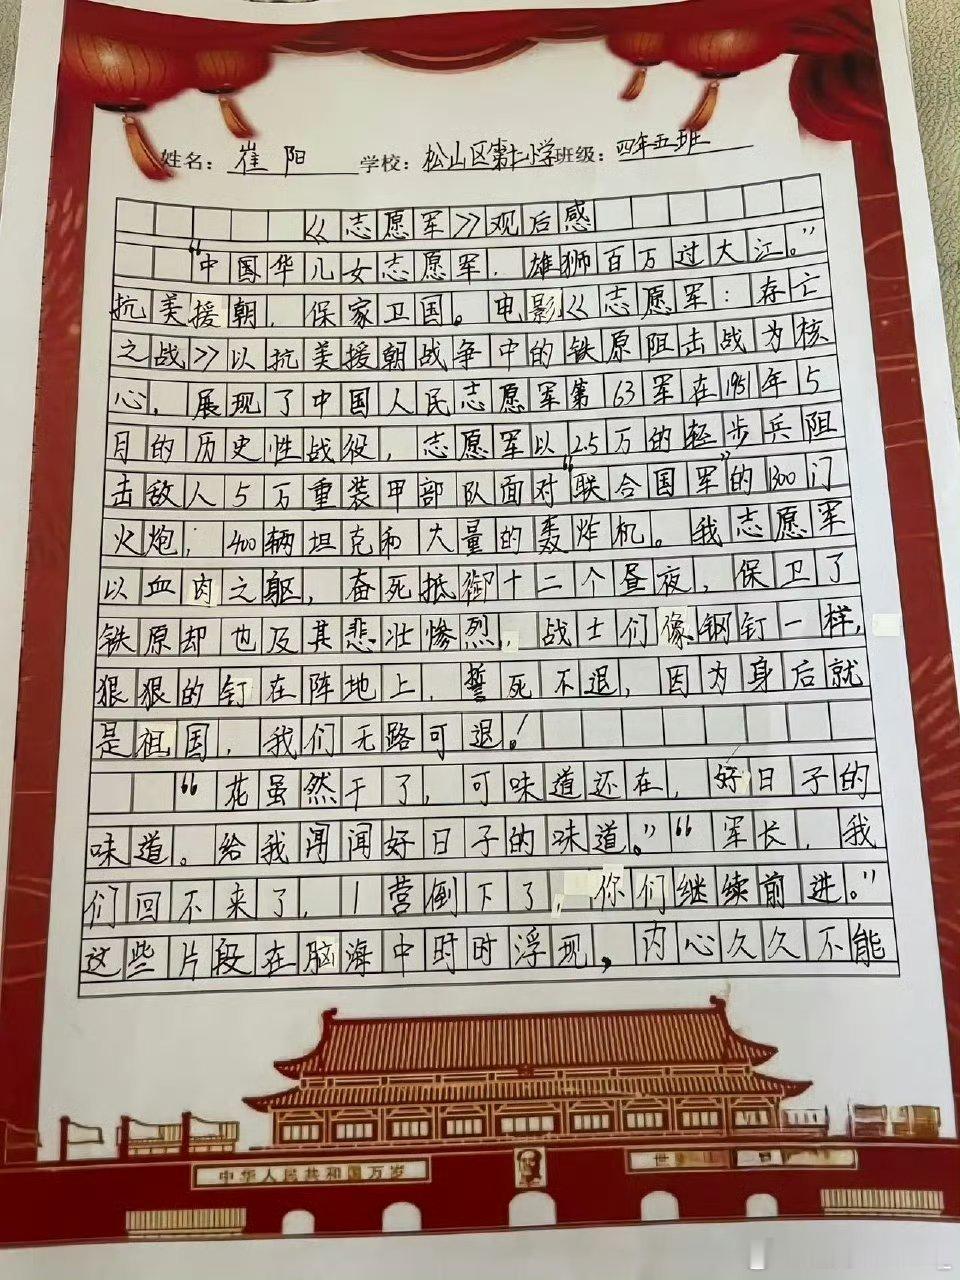 姓名：崔阳 学校：松山区第七小学 班级：四年五班
《志愿军》观后感
“中国华儿女志愿军，雄狮百万过大江。”
抗美援朝，保家卫国。电影《志愿军：存亡
之战》以抗美援朝战争中的铁原阻击战为核
心，展现了中国人民志愿军第63军在1951年5
月的历史性战役，志愿军以2.5万的轻步兵阻
击敌人5万重装甲部队面对“联合国军”的1300门
火炮，400辆坦克和大量的轰炸机。我志愿军
以血肉之躯，奋死抵御十二个昼夜，保卫了
铁原却也及其悲壮惨烈，战士们像钢钉一样，
狠狠的钉在阵地上，誓死不退，因为身后就
是祖国，我们无路可退！
“花虽然干了，可味道还在，好日子的
味道。给我闻闻好日子的味道。”“军长，我
们回不来了，1营倒下了，你们继续前进。”
这些片段在脑海中时时浮现，内心久久不能
中华人民共和国万岁